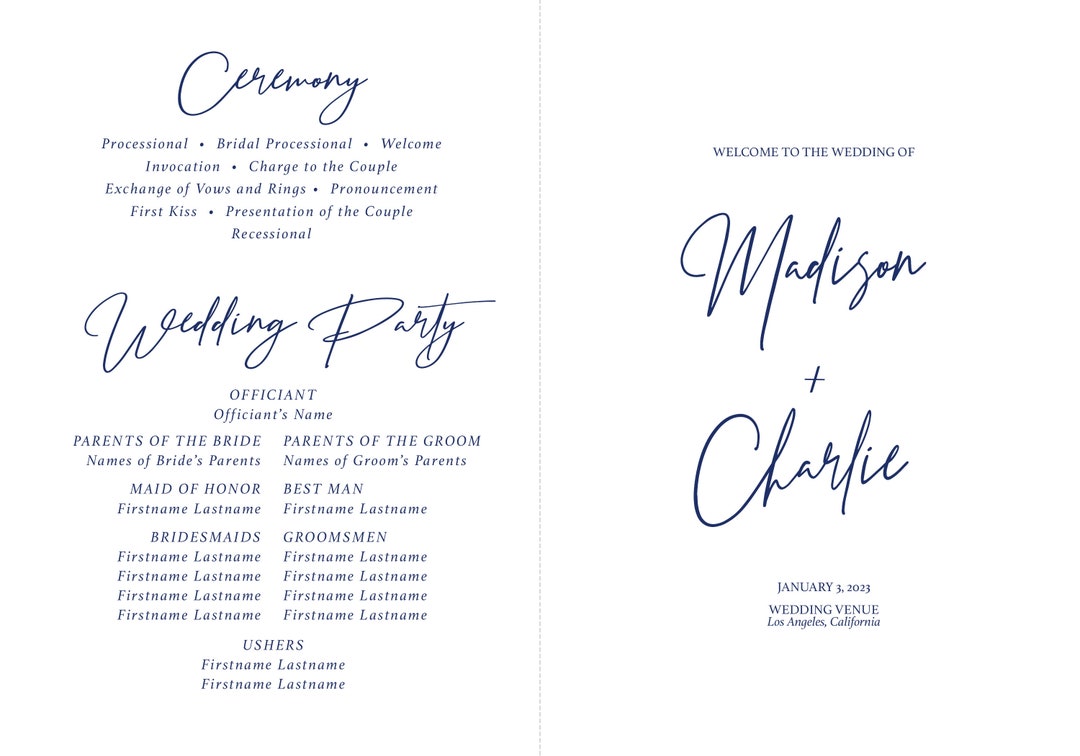 Ceremony
Processional • Bridal Processional • Welcome
Invocation • Charge to the Couple
Exchange of Vows and Rings • Pronouncement
First Kiss • Presentation of the Couple
Recessional
Wedding Party
OFFICIANT
Officiant's Name
PARENTS OF THE BRIDE PARENTS OF THE GROOM
Names of Bride's Parents Names of Groom's Parents
MAID OF HONOR BEST MAN
Firstname Lastname Firstname Lastname
BRIDESMAIDS GROOMSMEN
Firstname Lastname Firstname Lastname
Firstname Lastname Firstname Lastname
Firstname Lastname Firstname Lastname
Firstname Lastname Firstname Lastname
USHERS
Firstname Lastname
Firstname Lastname
WELCOME TO THE WEDDING OF
Madison
+
Charlie
JANUARY 3, 2023
WEDDING VENUE
Los Angeles, California